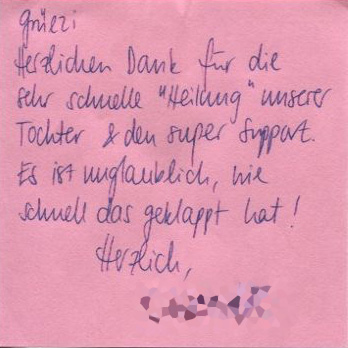 Grüezi
Herzlichen Dank für die
sehr schnelle "Heilung" unserer
Tochter & den super Support.
Es ist unglaublich, wie
schnell das geklappt hat!
Herzlich,